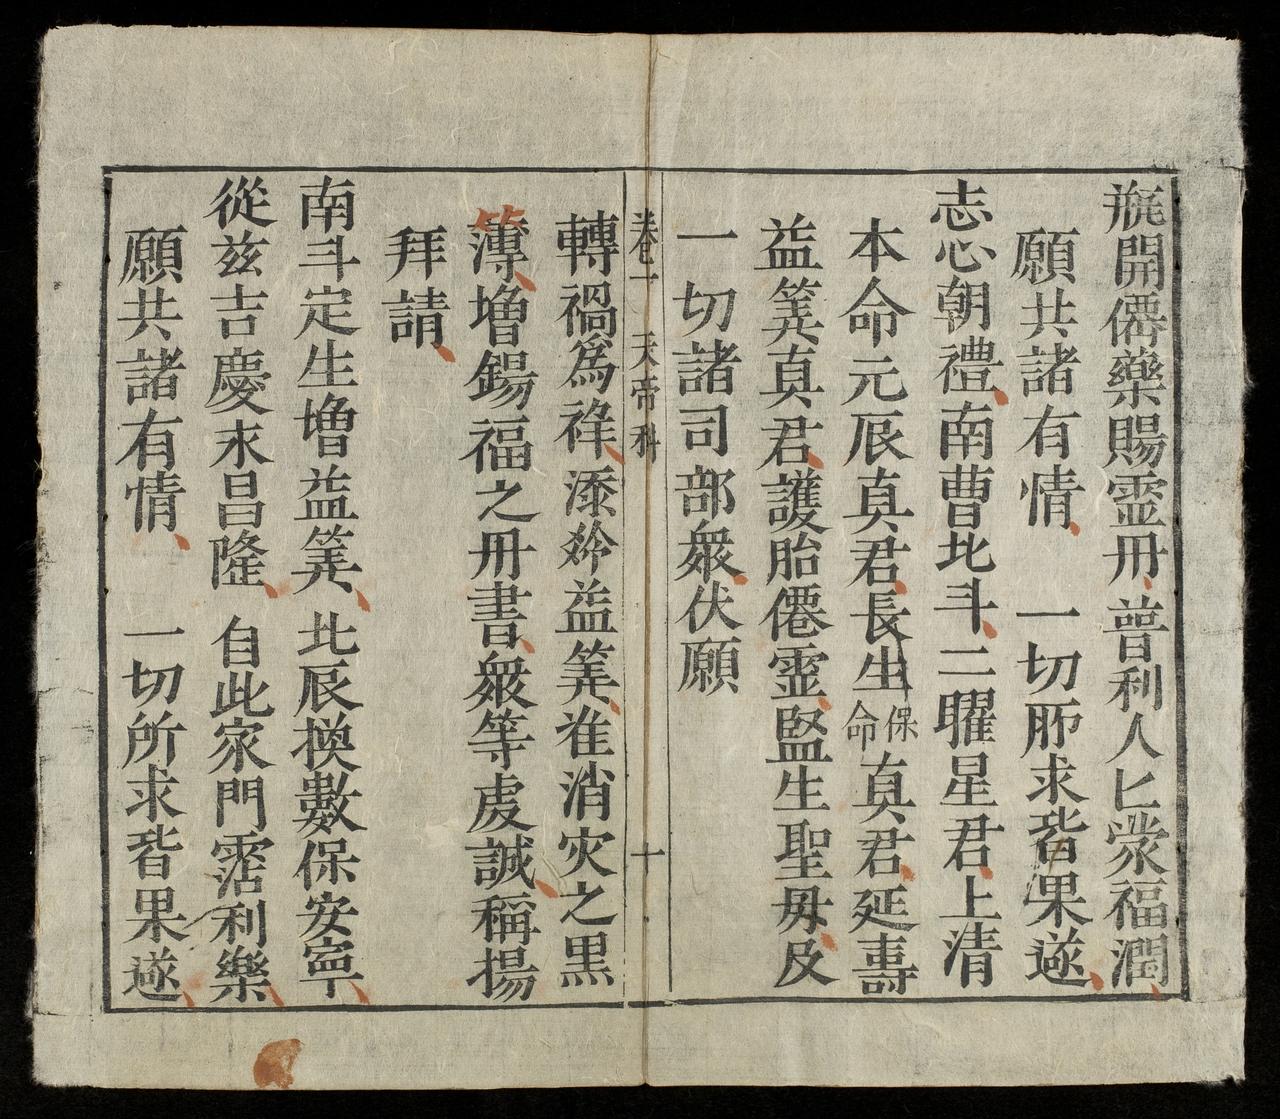 瓶開僊藥賜霊冊普利人匕衆福潤
願共諸有情 一切所求皆果遂
志心朝禮南曹北斗二曜星君上清
本命元辰真君長生保命真君延壽
益筭真君護胎僊霊監生聖毋及
一切諸司部衆伏願
卷一 天帝科 十
轉禍為祥添齡益筭准消灾之黒
簿増錫福之冊書衆等虔誠稱揚
拜請
南斗定生増益筭 北辰換數保安寧
從兹吉慶永昌隆 自此家門霑利樂
願共諸有情 一切所求皆果遂